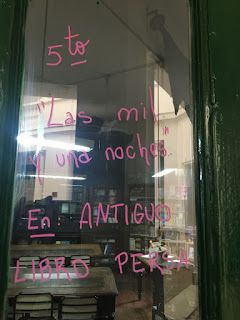 5to
"Las mil
y una noches"
En: ANTIGUO
LIBRO PERSA